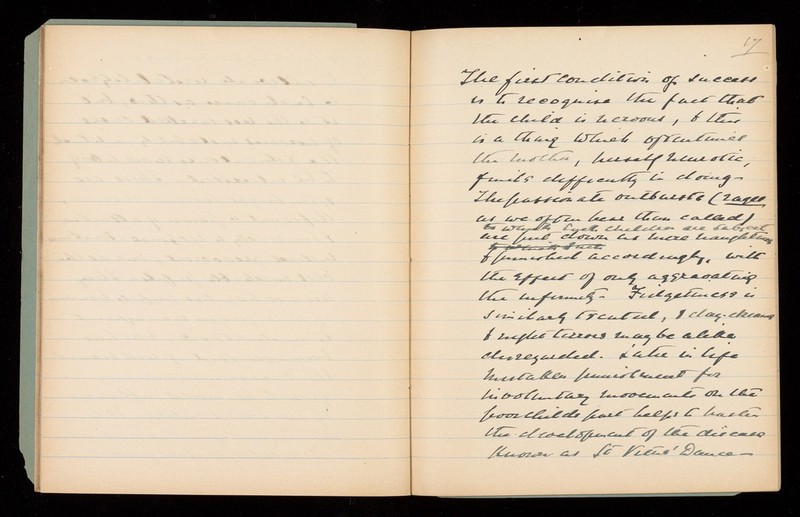 17
The first condition of success
is to recognise the fact that
the child is nervous, & this
is a thing which oftentimes
the mother, herself neurotic,
finds difficulty in doing -
The passionate outbursts (rages
as we often hear them called)
to which such children are subject
are put down as mere naughtiness
to which such
& punished accordingly, with
the effect of only aggravating
the infirmity - Fidgetiness is
similarly treated, & day-dreams
& night terrors may be alike
disregarded. Later in life
mistaken punishment for
involuntary movements on the
poor childs part helps to hasten
the development of the disease
known as St Vitus' Dance -